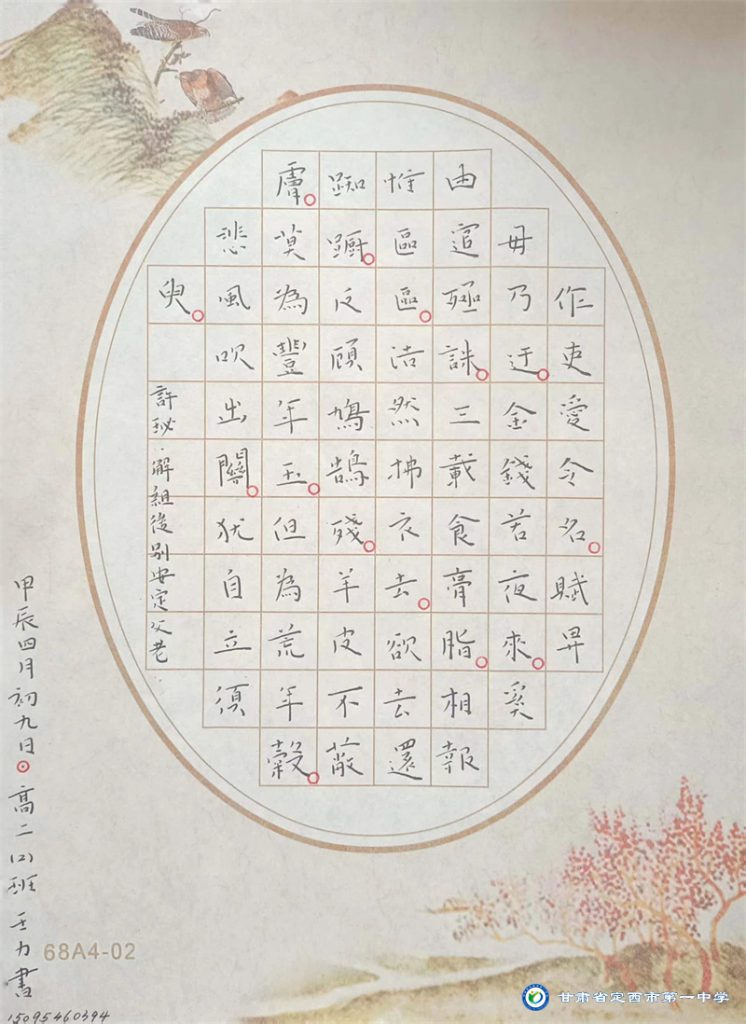 作吏愛令名。賦畀
毋乃迂。金錢若夜來。奚
由逭殛誅。三載食膏脂。相報
惟區區。浩然拂衣去。欲去還
踟躕。反顧鳩鵠殘。羊皮不蔽
膚。莫為豐年玉。但為荒年穀。
悲風吹出關。犹自立須
臾。
許珌·解組後別安定父老
甲辰四月初九日。高二(2)班 王力書
15095460394
68A4-02
甘肃省定西市第一中学